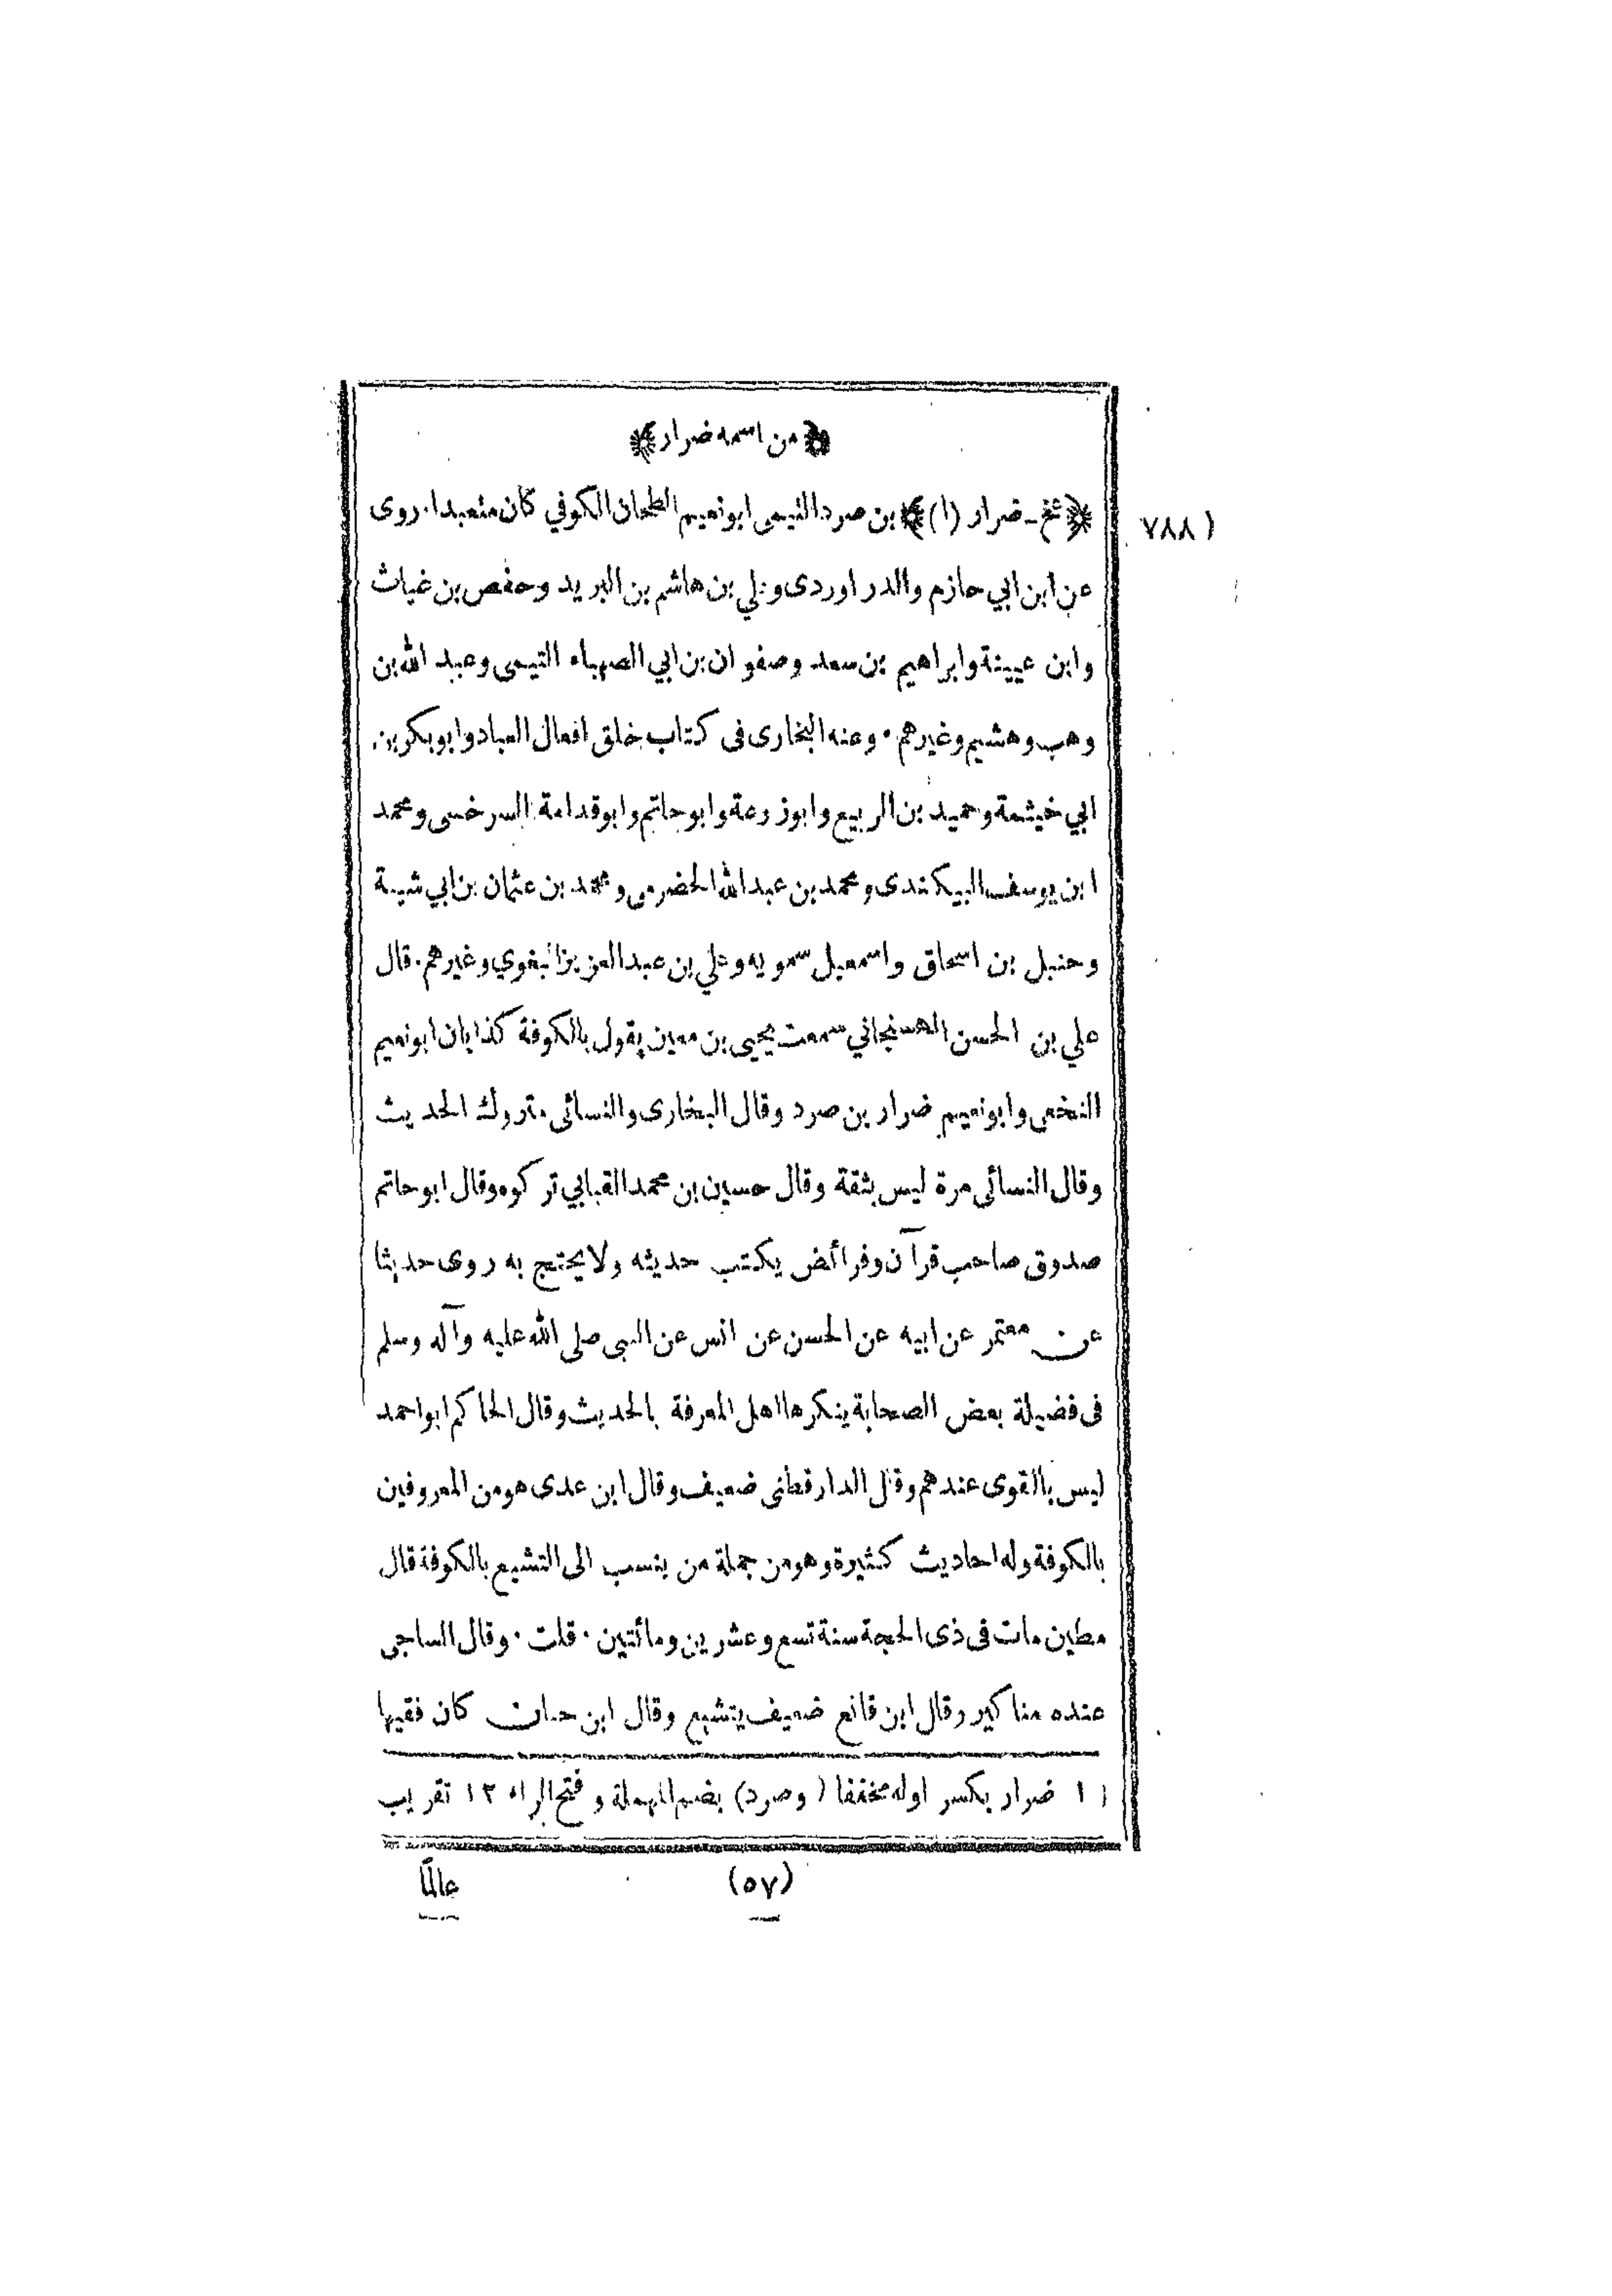 ﴿من اسمه ضرار﴾
﴿عخ ـ ضرار (١)﴾ بن صرد التيمى ابو نعيم الطحان الكوفي كان متعبدا. روى
٧٨٨ (
عن ابن ابي حازم والدراوردى وعلي بن هاشم بن البريد وحفص بن غياث
وابن عيينة وابراهيم بن سعد وصفوان بن ابي الصهباء التيمى وعبد الله بن
وهب وهشيم وغيرهم. وعنه البخارى فى كتاب خلق افعال العباد وابو بكر بن
ابي خيثمة وحميد بن الربيع وابو زرعة وابو حاتم وابو قدامة السرخسى ومحمد
ابن يوسف البيكندى ومحمد بن عبد الله الحضرمى ومحمد بن عثمان بن ابي شيبة
وحنبل بن اسحاق واسمعيل سمويه وعلي بن عبد العزيز البغوي وغيرهم. قال
علي بن الحسن الهسنجاني سمعت يحيى بن معين يقول بالكوفة كذابان ابو نعيم
النخعى وابو نعيم ضرار بن صرد وقال البخارى والنسائى متروك الحديث
وقال النسائى مرة ليس بثقة وقال حسين بن محمد القبابي تركوه وقال ابو حاتم
صدوق صاحب قرآن وفرائض يكتب حديثه ولا يحتج به روى حديثا
عن معتمر عن ابيه عن الحسن عن انس عن النبى صلى الله عليه وآله وسلم
فى فضيلة بعض الصحابة ينكرها اهل المعرفة بالحديث وقال الحاكم ابو احمد
ليس بالقوى عندهم وقال الدارقطنى ضعيف وقال ابن عدى هو من المعروفين
بالكوفة وله احاديث كثيرة وهو من جملة من ينسب الى التشيع بالكوفة قال
مطين مات فى ذى الحجة سنة تسع وعشرين ومائتين. قلت. وقال الساجى
عنده مناكير وقال ابن قانع ضعيف يتشيع وقال ابن حبان كان فقيها
(١ ضرار بكسر اوله مخففا (وصرد) بضم المهملة وفتح الراء ١٢ تقريب
(٥٧)
عالمًا